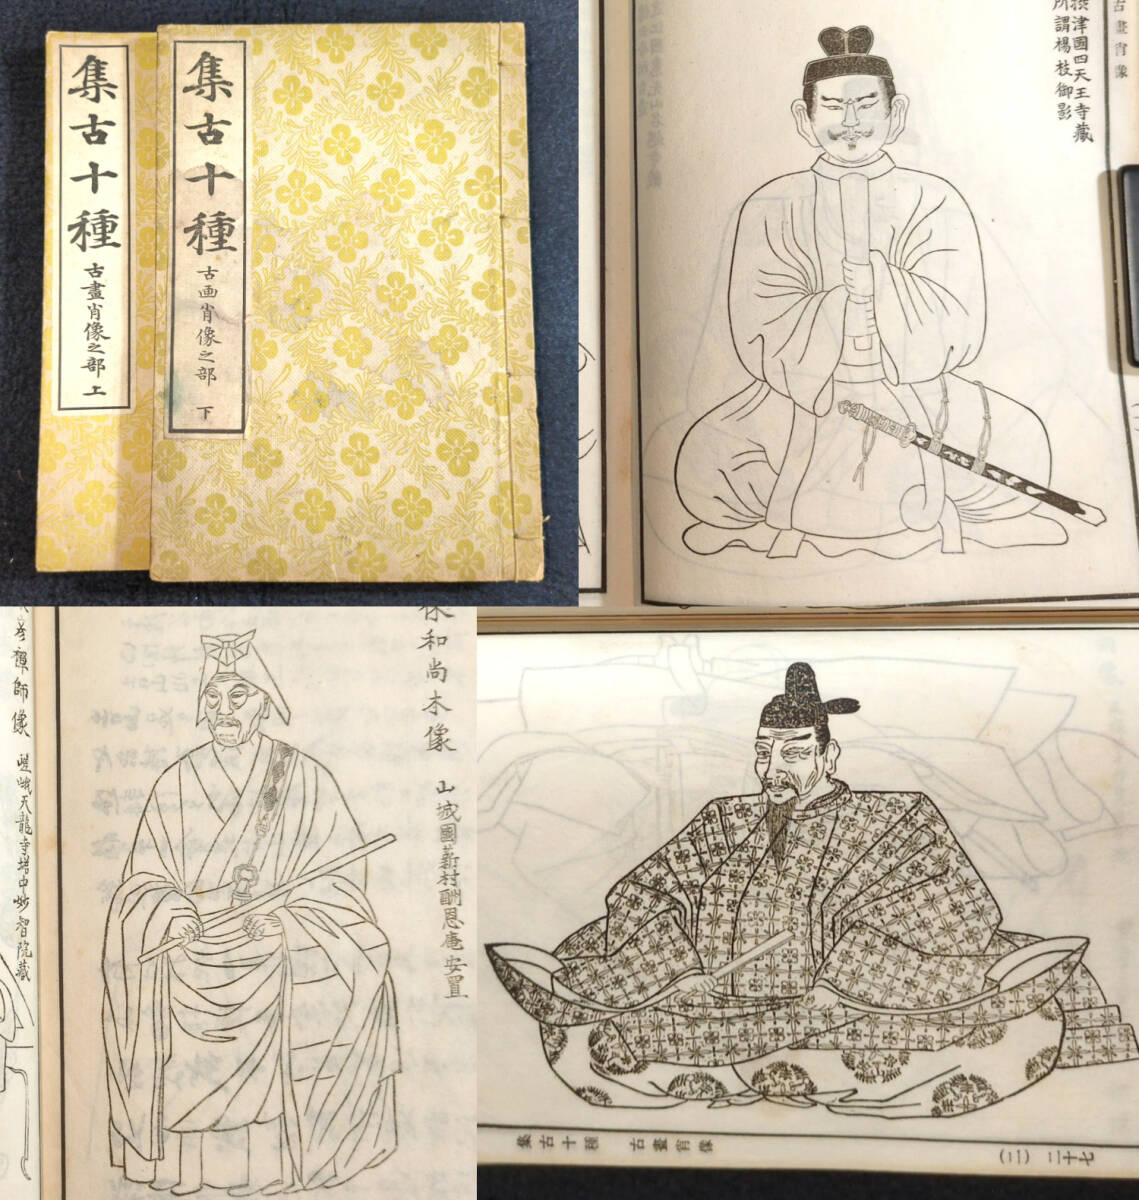 集古十種
古畫肖像之部 上
集古十種
古画肖像之部 下
古畫肖像
攝津國四天王寺藏
所謂楊枝御影
禪師像 嵯峨天龍寺塔中妙智院藏
和尚木像 山城國薪村酬恩庵安置
集古十種 古畫肖像
(二) 二十七